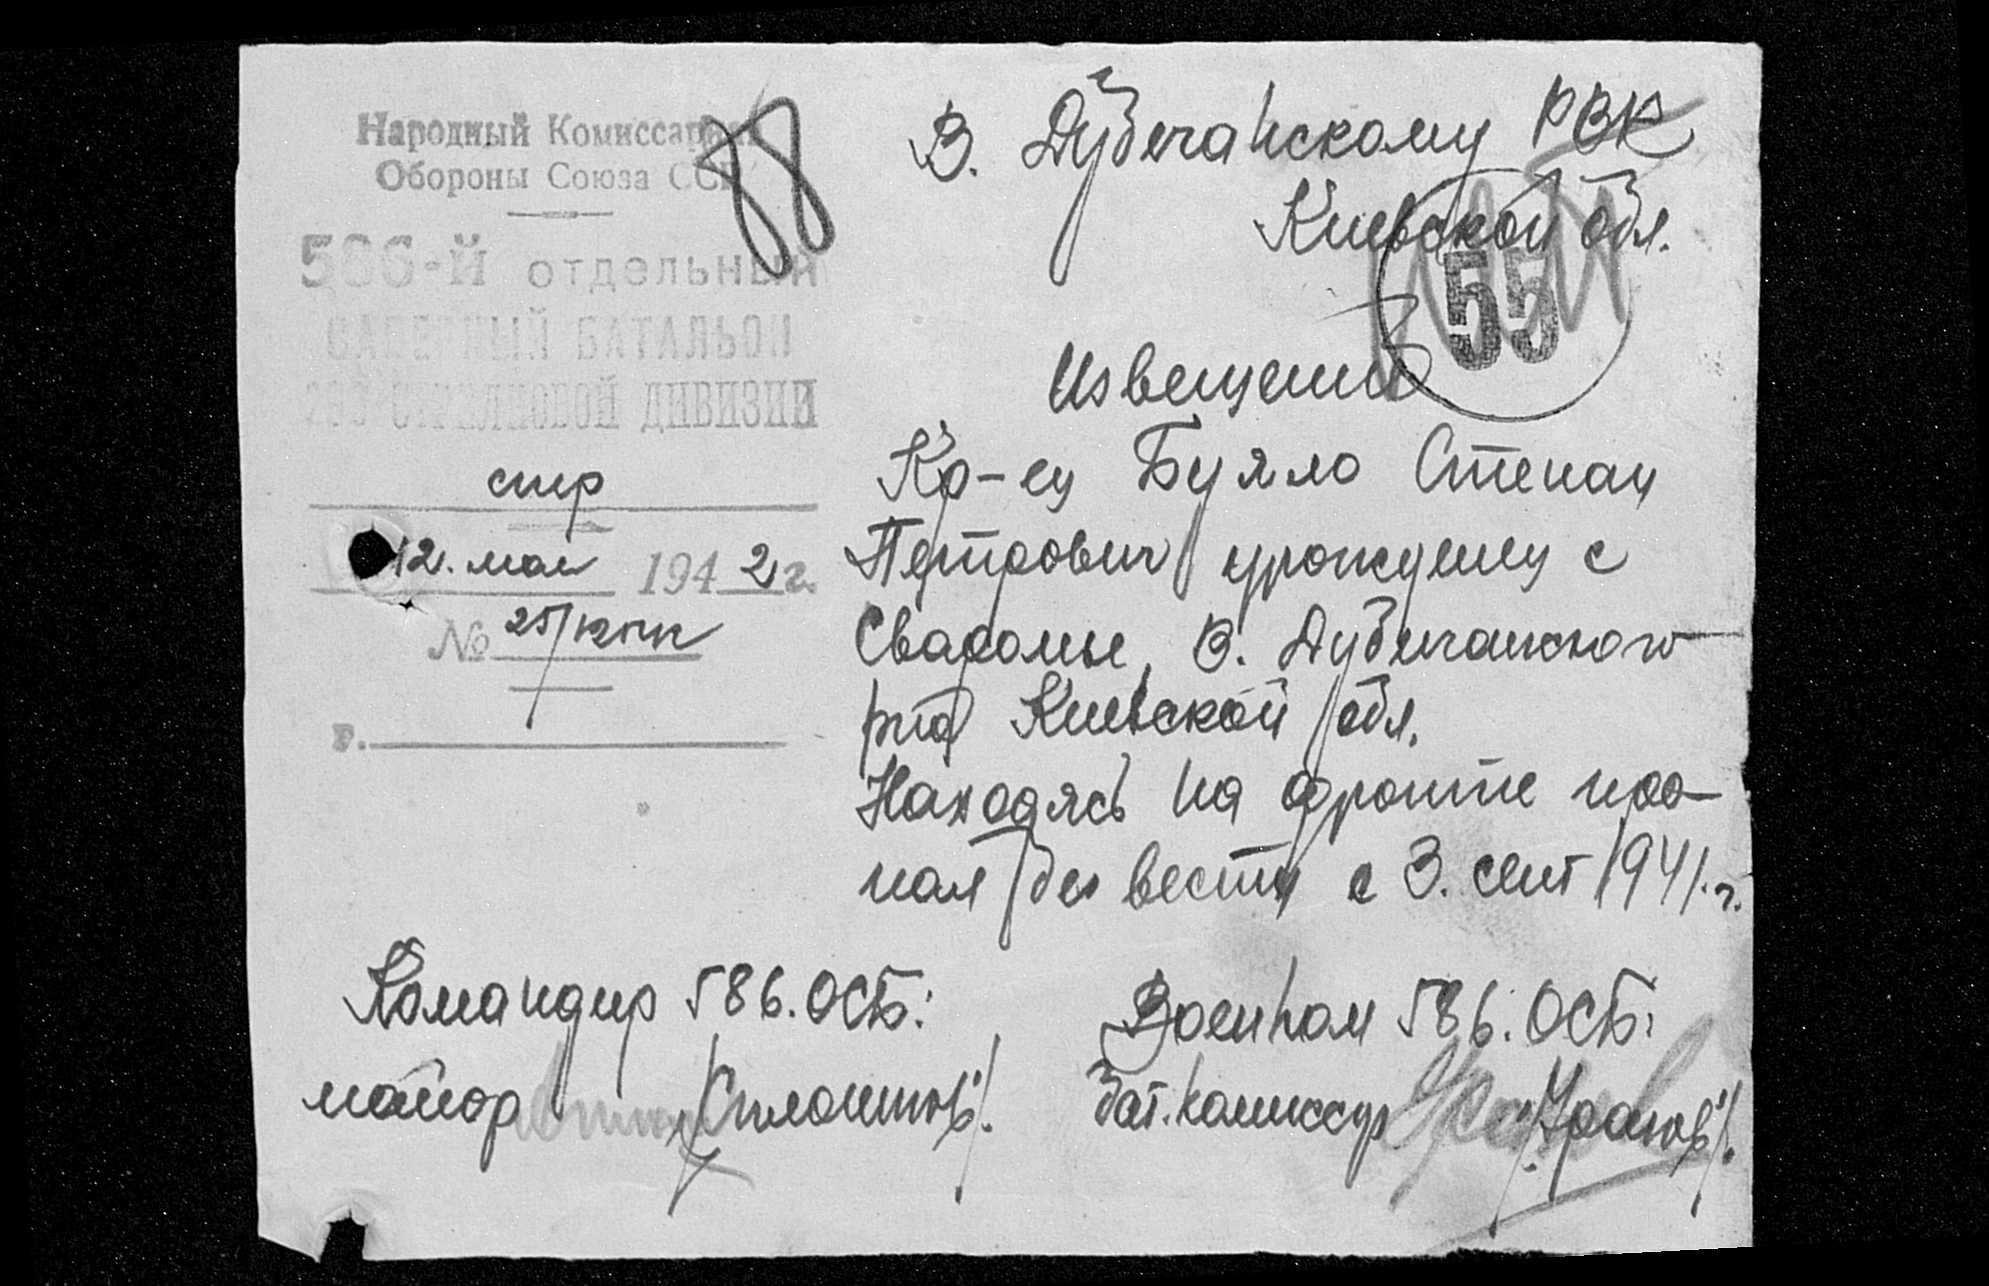 Народный Комиссариат
Обороны Союза ССР
88
586-й отдельный
САПЕРНЫЙ БАТАЛЬОН
СТРЕЛКОВОЙ ДИВИЗИИ
12. мая 1942 г.
№ 25/
г.
В. Дубечанскому РВК
Киевской обл.
55
Извещение
Кр-ец Буяло Степан
Петрович урожденец с
Сваромье, В. Дубечанского
р-на Киевской обл.
Находясь на фронте про-
пал без вести с 3. сент 1941.г.
Командир 586.ОСБ:
майор
Военком 586.ОСБ:
Бат.комиссар